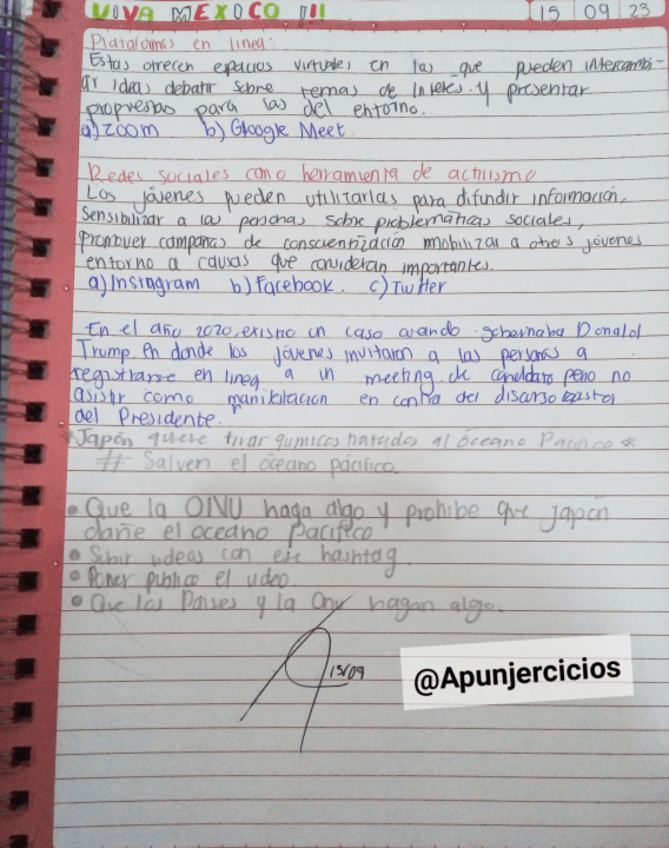 VIVA MEXICO !!! 15 09 23
Plataformas en linea:
Estas ofrecen epacios virtuales en las que pueden intercambi-
ar ideas debatir sobre temas de interes y presentar
propuestas para las del entorno.
a) zoom b) Gloogle Meet
Redes sociales como herramienta de activismo
Los jóvenes pueden utilitarlas para difundir información,
Sensibilizar a las personas sobre problemáticas sociales,
promover campañas de conscientización mobilizar a otros jóvenes
entorno a causas que consideran importantes.
a) Instagram b) Facebook. c) Twitter
En el año 2020, existio un caso cuando gobernaba Donald
Trump en donde los jóvenes invitaron a las personas a
registrarse en linea a un meeting de candidato pero no
asistir como manifestacion en contra del discurso
del Presidente.
*Japón quiere tirar quimicos tratados al óceano Pacifico *
# Salven el óceano pácifico.
• Que la ONU haga algo y prohibe que japon
dañe el oceano Pacifico
• Subir videos con ese hashtag
• Poner publico el video.
• Que los Paises y la Onu hagan algo.
15/09
@Apunjercicios